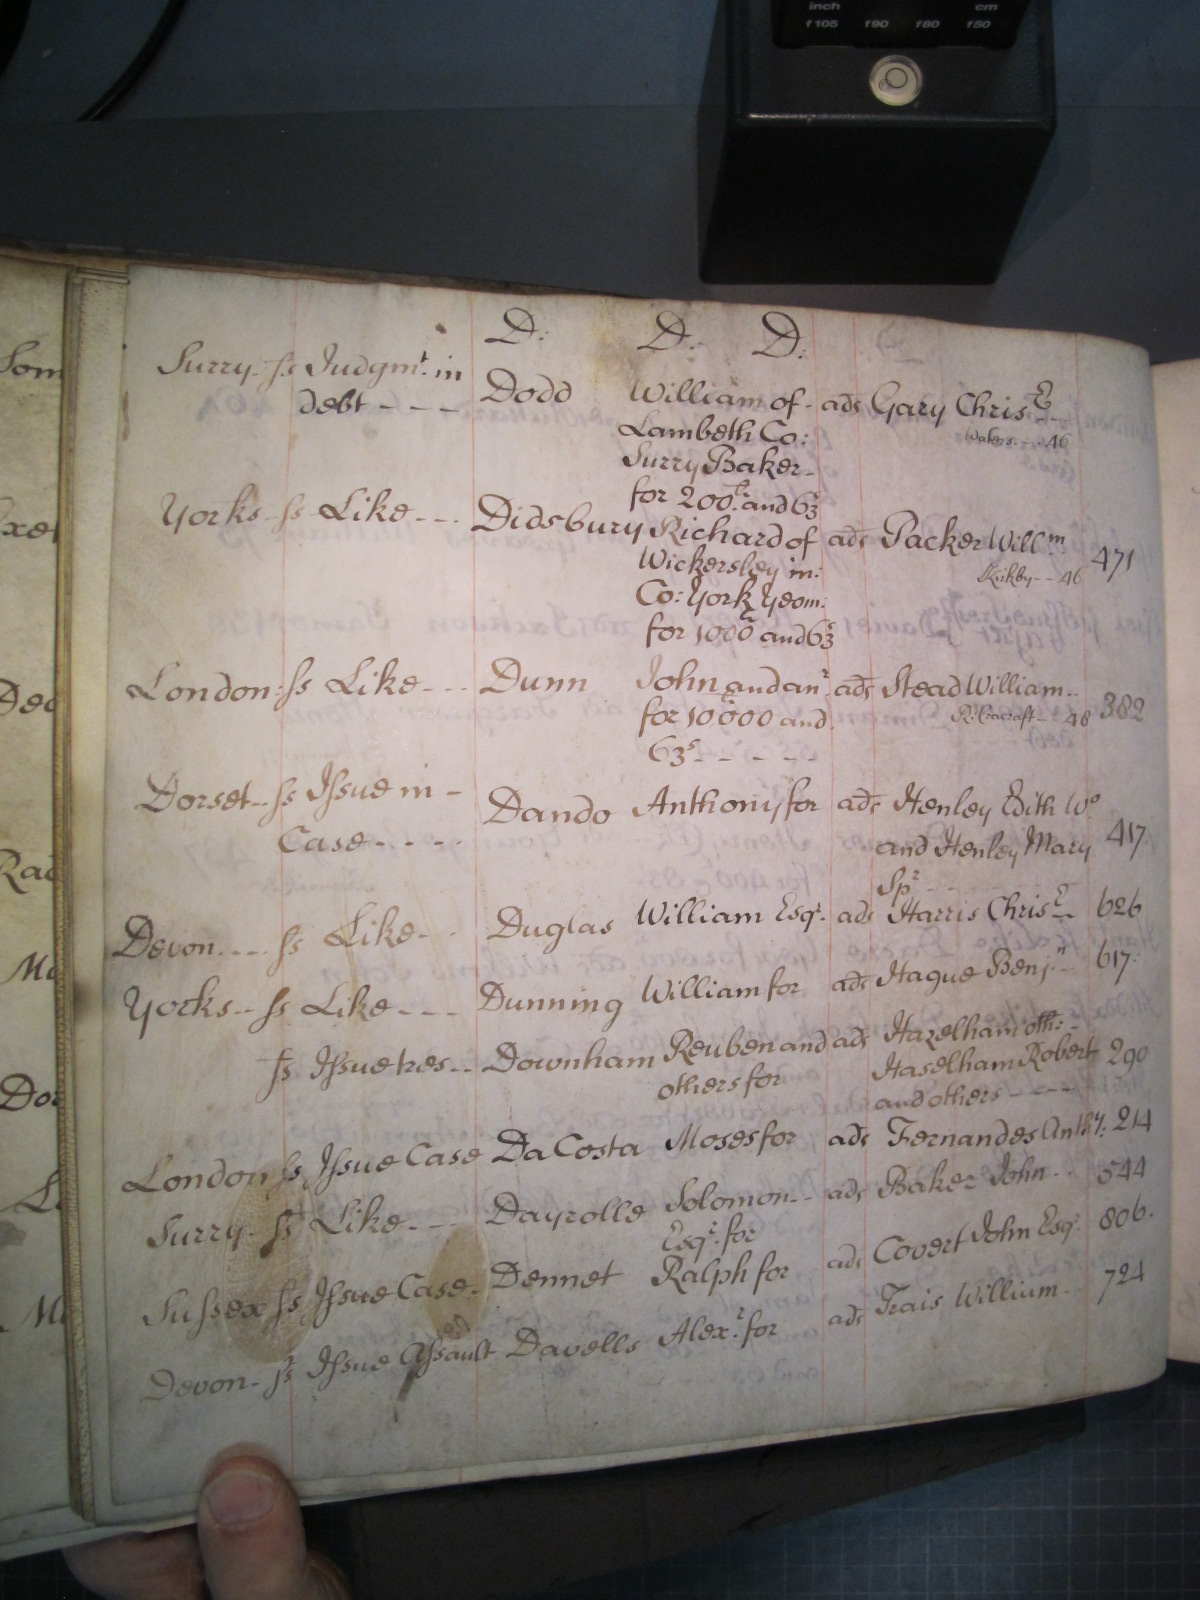 inch cm
f105 f90 f80 f50
D: D: D:
Surry ss Judgmt. in debt - - - Dodd William of ads Gary Christr
Lambeth Co: Waters - - 46
Surry Baker
for 200l. and 63s
Yorks ss Like - - - Didsbury Richard of ads Packer Willm 471
Wickersley in: Kirkby - - 46
Co: York Yeom:
for 1000l and 63s
London: ss Like - - - Dunn John and anr ads Stead William - - 382
for 10000 and - - 48
63s - - - - -
Dorset - - ss Issue in - Dando Anthony for ads Henley Edith Wo
Case - - - - and Henley Mary 417
Spr
Devon - - - ss Like - - Duglas William Esqr. ads Harris Christr - 626
Yorks - - ss Like - - - Dunning William for ads Hague Benjn - - 617
ss Issue tres - - Downham Reuben and ads Hazelham oth: -
others for Haselham Robert 290
and others - - - -
London ss Issue Case Da Costa Moses for ads Fernandes Anthy: 214
Surry - ss Like - - - Dayrolle Solomon - - ads Baker John - - 544
Esqr. for
Sussex ss Issue Case - Dennet Ralph for ads Covert John Esqr. 806.
Devon - ss Issue Assault Davells Alexr. for ads Trais William - - 724
Som
xet
Ded
Rad
Mi
Dor
L
M